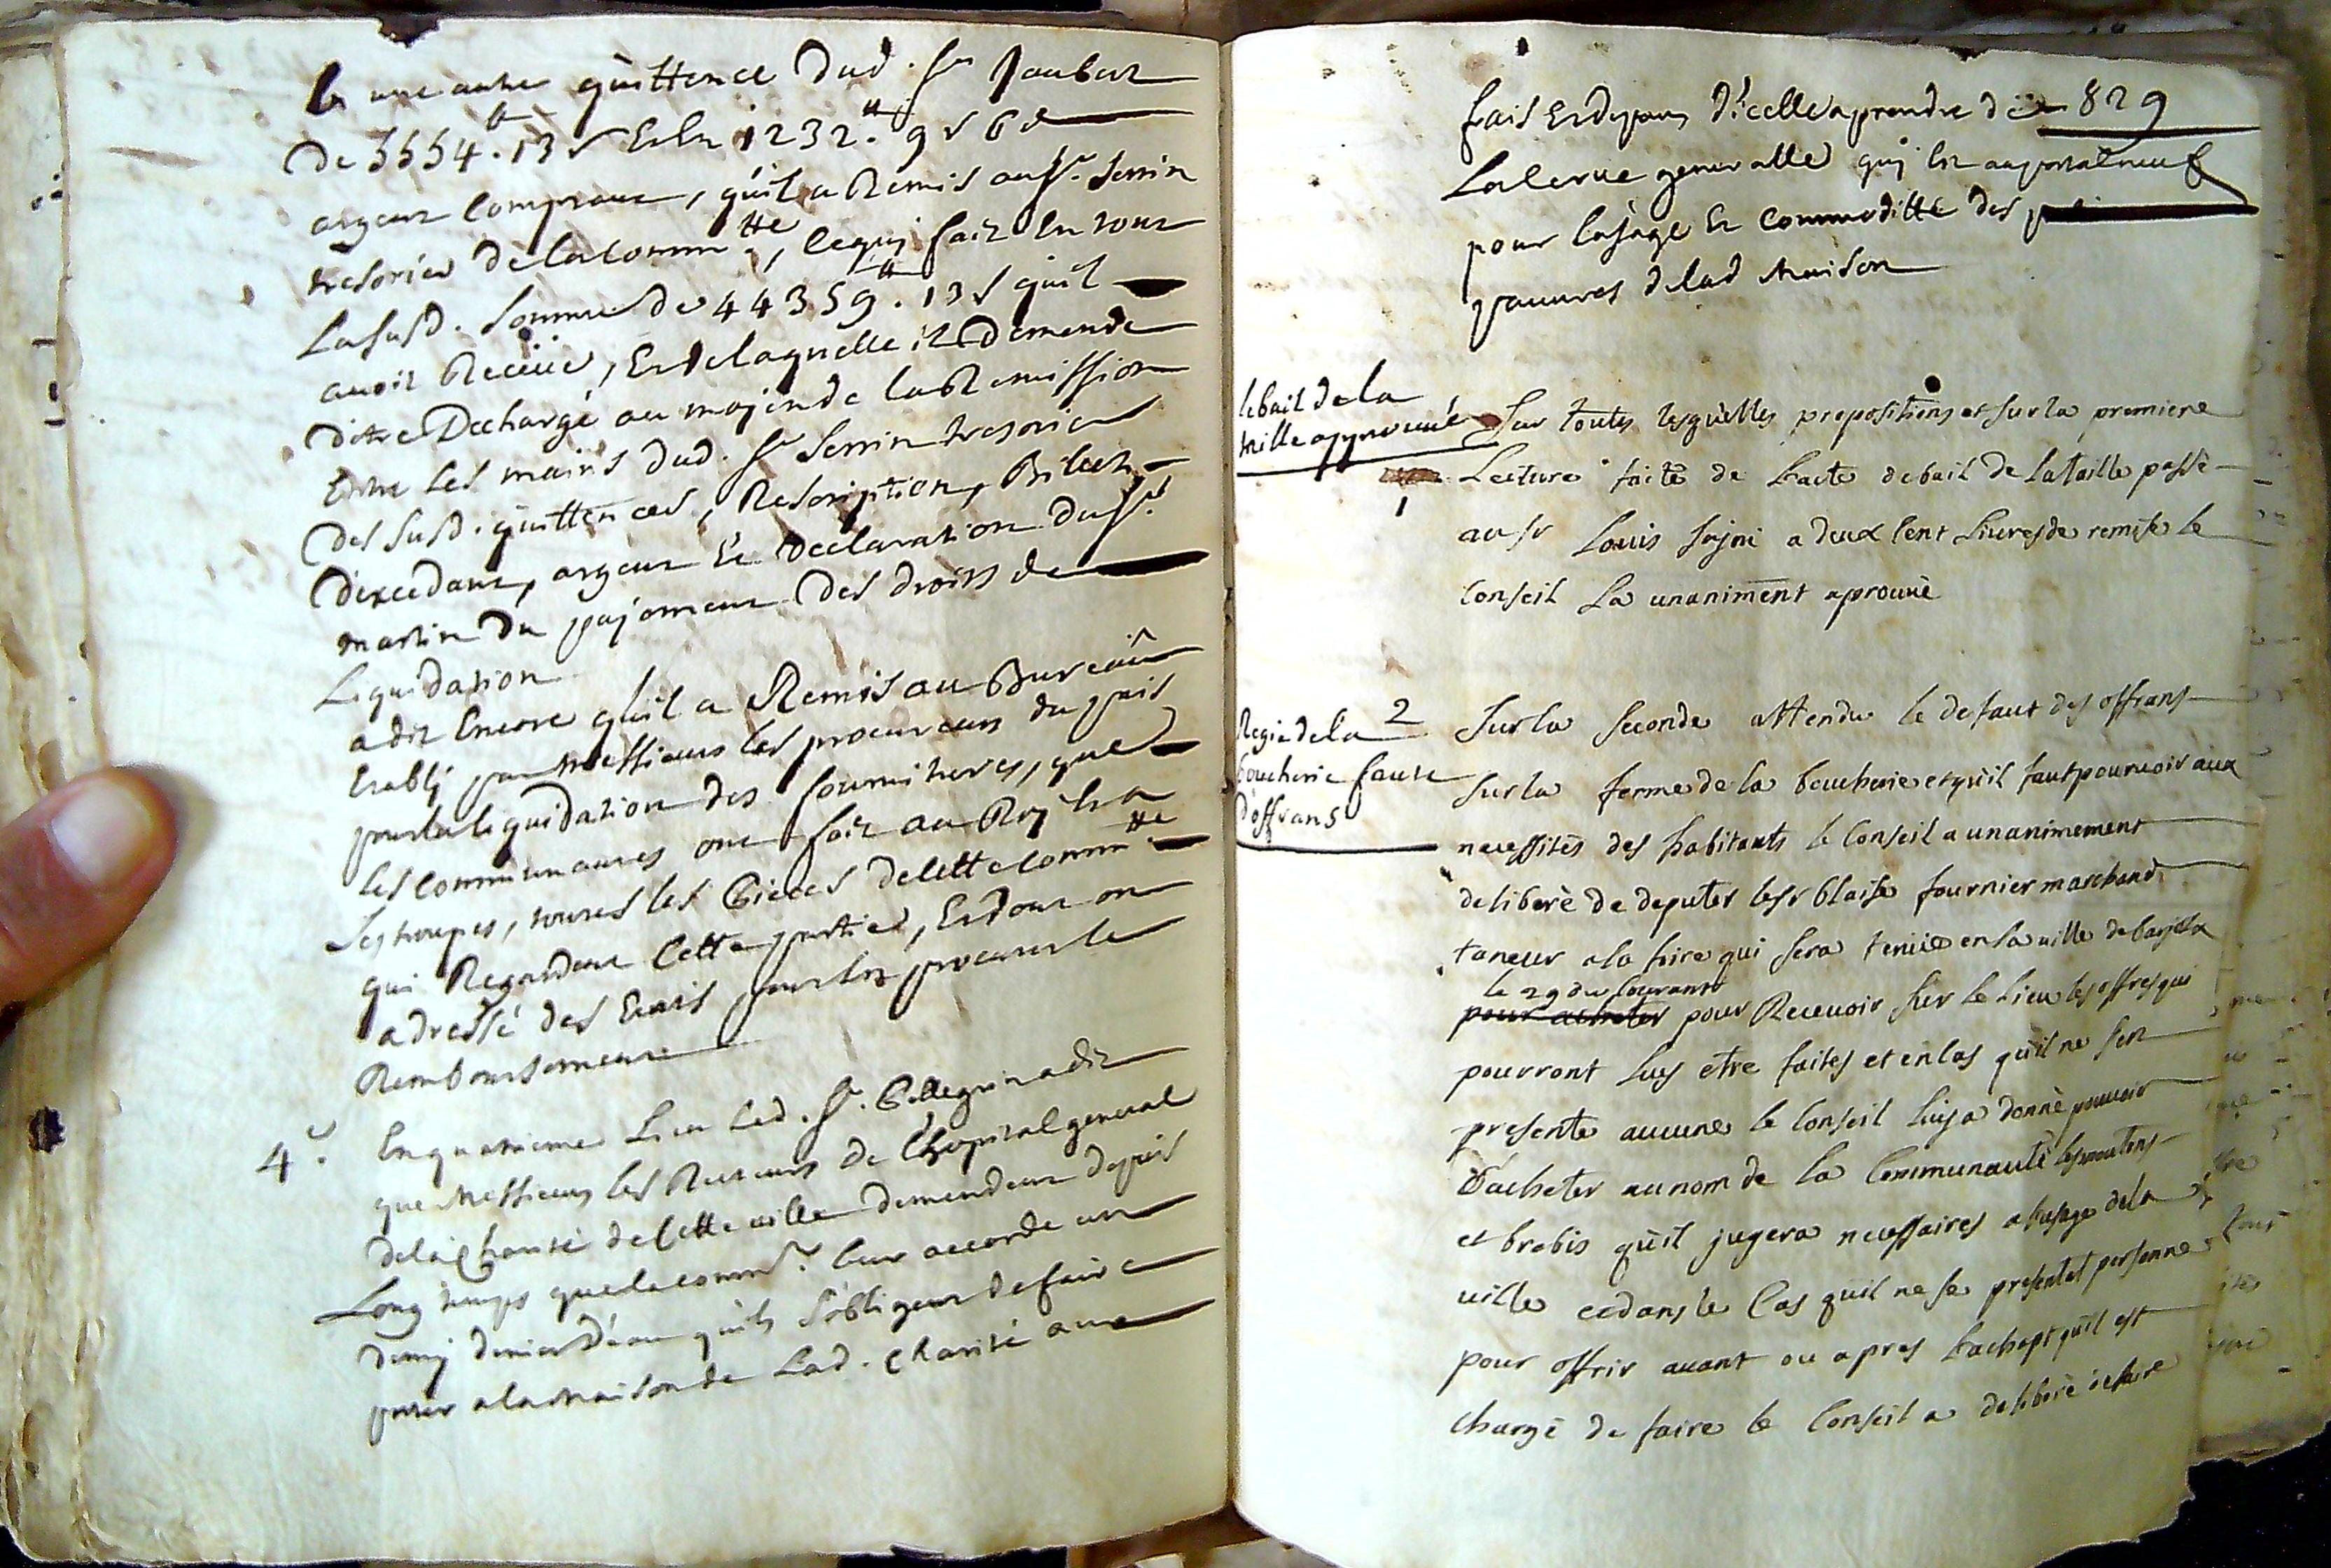 En une autre quittence dud. Sr Jaubert
De 3554.tt 13 s Et En 1232.tt 9 s 6 d
argent Comptant, qu'il a Remis au Sr. Serrin
tresorier de la Comm.tte, lequj fait En tout
La susd. Somme de 44359.tt 13 s qu'il
auoit Receüe, Et de laquelle il demende
d'etre Dechargé au mojen de la Remission
Entre les mains dud. Sr Serrin tresorier
Des susd. quittences, Rescription, Billet
d'excedant, argent Et Declaration du Sr.
martin du pajement des droits de
Liquidation
a dit Encore qu'il a Remis au Bureau
Etablj par Messieurs les procureurs du païs
pour la liquidation des fournitures, que
les Communautes ont fait au Roj Et a
Ses troupes, toutes les Pieces de Cette Comm.tte
qui Regardent Cette partie, Et dont on
adressé des Etats pour En procurer le
Remboursement
4.
En quatrieme Lieu Led. Sr. Pellegrin a dit
que Messieurs les Recteurs de L'hopital general
de la Charité de Cette ville demendent depuis
Long temps que la Comm.té leur accorde un
demj denier d'eau qu'ils s'obligent de faire
porter a la Maison de Lad. Charité aux
829
fraix Et depans d'icelle a prendre de
La serue generalle quj Est au portalneuf
pour l'usage Et Commoditté des
pauures de lad Maison
le bail de la
taille approuué
1
Sur toutes lesquelles propositions et sur la premiere
Lecture faite de L'acte de bail de la taille passé
au sr Louis Sajni a deux Cent Liures de remise le
Conseil La unaniment aprouuè
Regie de la
boucherie faute
d'offrans
2
Sur la seconde attendu le defaut des offrans
sur la ferme de la boucherie et qu'il faut pouruoir aux
necessités des habitants le Conseil a unanimement
deliberè de deputer le sr blaise fournier marchand
taneur a la foire qui sera tenüe en la uille de barjols
le 29 du Courant
pour acheter pour Receuoir sur le Lieu les offres qui
pourront Luy etre faites et en Cas qu'il ne s'en
presente aucune le Conseil Luy a donnè pouuoir
d'acheter au nom de la Communautè les moutons
et brebis qu'il jugera necessaires a l'usage de la
uille et dans le Cas qu'il ne se presentat personne
pour offrir auant ou apres L'achept qu'il est
Chargè de faire le Conseil a deliberè de faire